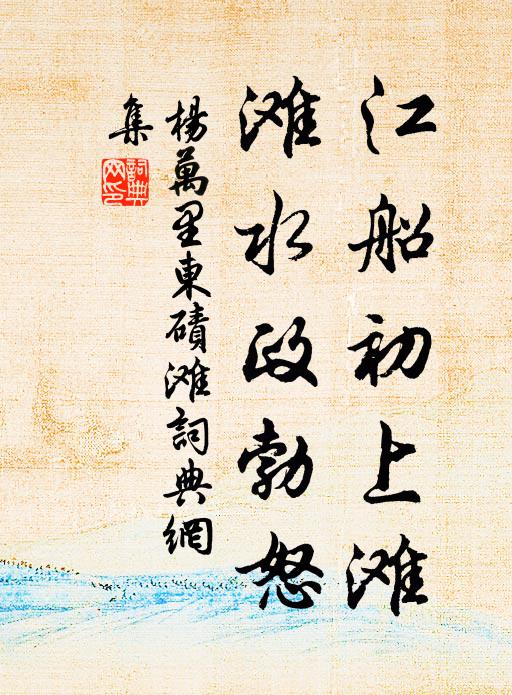 江船初上滩
滩水政勃怒
楊萬里東磧滩詞典網
集
詞典網印